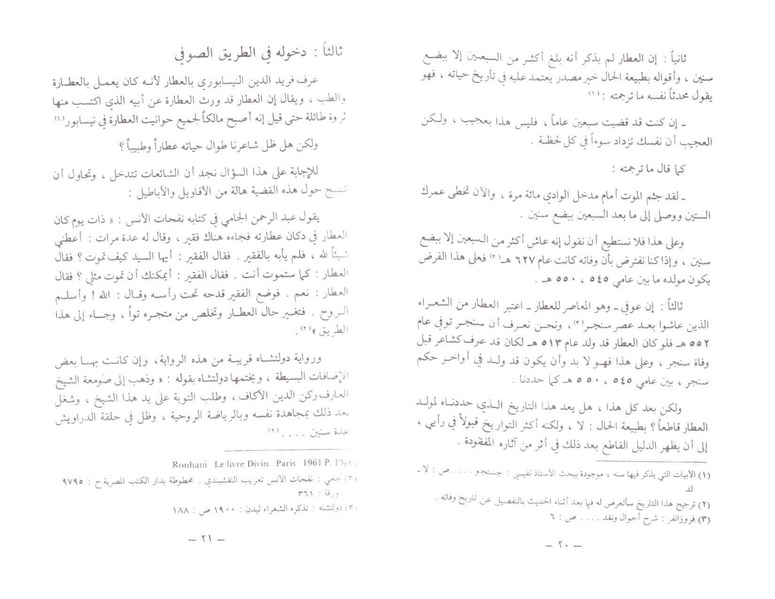 ثانياً : إن العطار لم يذكر أنه بلغ أكثر من السبعين إلا ببضع
سنين ، وأقواله بطبيعة الحال خير مصدر يعتمد عليه في تأريخ حياته ، فهو
يقول محدثاً نفسه ما ترجمته : (١)
ـ إن كنت قد قضيت سبعين عاماً ، فليس هذا بعجيب ، ولـكن
العجيب أن نفسك تزداد سوءاً في كل لحظـة .
كما قال ما ترجمته :
ـ لقد جثم الموت أمام مدخل الوادي مائة مرة ، والآن تخطى عمرك
الستين ووصل إلى ما بعد السبعين ببضع سنين .
وعلى هذا فلا نستطيع أن نقول إنه عاش أكثر من السبعين إلا ببضع
سنين ، وإذا كنا نفترض بأن وفاته كانت عام ٦٢٧ هـ(٢) فعلى هذا الفرض
يكون مولده ما بين عامي ٥٤٥ ، ٥٥٠ هـ .
ثالثاً : إن عوفي ـ وهو المعاصر للعطار ـ اعتبر العطار من الشعـراء
الذين عاشوا بعـد عصر سنجـر(٣)، ونحـن نعـرف أن سنجـر توفي عام
٥٥٢ هـ فلو كان العطار قد ولد عام ٥١٣ هـ لكان قد عرف كشاعر قبل
وفاة سنجر ، وعلى هذا فهـو لا بد وأن يكون قد ولـد في أواخـر حكم
سنجر ، بين عامي ٥٤٥ ، ٥٥٠ هـ كما حددنـا .
ولكن بعد كل هذا ، هل يعد هذا التاريخ الـذي حددنـاه لمولـد
العطار قاطعاً؟ بطبيعة الحال : لا ، ولكنه أكثر التواريخ قبولاً في رأيي ،
إلى أن يظهر الدليل القاطع بعد ذلك في أثر من آثاره المفقودة .
(١) الأبيات التي يذكر فيها سنه ، موجودة ببحث الأستاذ نفيسي : جستجـو .... ص : لا ـ
لد
(٢) ترجيح هذا التاريخ سأتعرض له فيما بعد أثناء الحديث بالتفصيل عن تاريخ وفاته .
(٣) فروزانفر : شرح أحوال ونقد .... ص : ٦
ـ ٢٠ ـ
ثالثاً : دخوله في الطريق الصوفي
عرف فريد الدين النيسابوري بالعطار لأنـه كان يعمـل بالعطـارة
والطب ، ويقال إن العطار قد ورث العطارة عن أبيه الذي اكتسب منها
ثروة طائلة حتى قيل إنه أصبح مالكاً لجميع حوانيت العطارة في نيسابور(١)
ولكن هل ظل شاعرنا طوال حياته عطاراً وطبيباً ؟
للإجابة على هـذا السؤال نجـد أن الشائعات تتدخـل ، وتحـاول أن
تنسج حول هذه القضية هالة من الأقاويل والأباطيل :
يقول عبد الرحمن الجامي في كتابه نفحات الأنس : « ذات يوم كان
العطار في دكان عطارته فجاءه هناك فقير ، وقال له عدة مرات : أعطني
شيئاً لله ، فلم يأبه بالفقير . فقال الفقير : أيها السيد كيف تموت ؟ فقال
العطار : كما ستموت أنت . فقال الفقير : أيمكنك أن تموت مثلي ؟ فقال
العطار : نعم . فوضع الفقير قدحه تحت رأسـه وقـال : الله ! وأسلـم
الـروح . فتغير حال العطـار وتخلص من متجـره تواً ، وجـاء إلى هـذا
الطريق »(٢).
ورواية دولتشاه قريبـة من هـذه الرواية، وإن كانت بهـا بعض
الإضافات البسيطة ، ويختمها دولتشاه بقوله : « وذهب إلى صومعة الشيخ
العارف ركن الدين الأكاف، وطلب التوبة على يد هذا الشيخ ، وشغل
بعد ذلك بمجاهدة نفسه وبالرياضة الروحية ، وظل في حلقة الدراويش
عدة سنين .... (٣)
(١) Rouhani Le livre Divin Paris 1961 P. 13
(٢) جامي : نفحات الأنس تعريب النقشبندي . مخطوطة بدار الكتب المصرية ح : ٩٧٩٥
ورقة : ٣٦١
(٣) دولتشاه : تذكره الشعراء ليدن : ١٩٠٠ ص : ١٨٨
ـ ٢١ ـ